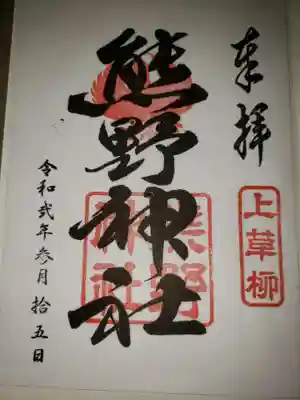 奉拝
上草柳
熊野神社
熊野
神社
令和弐年参月拾五日